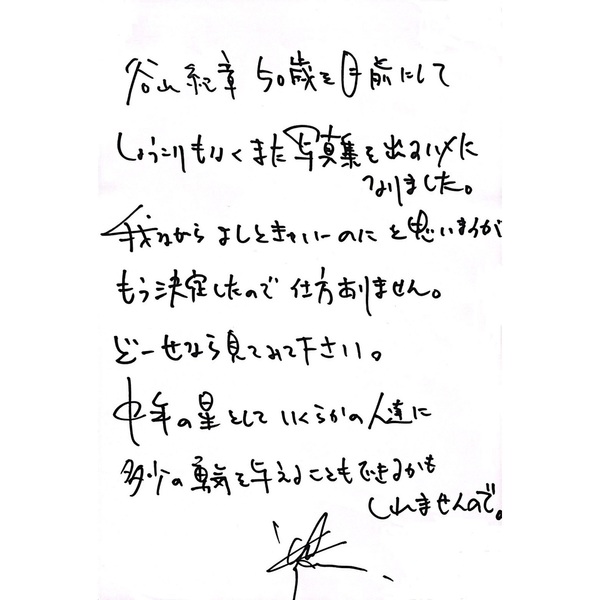 谷山紀章 50歳を目前にして
しょうこりもなくまた写真集を出すハメに
なりました。
我ながらよしときゃいーのにと思いますが
もう決定したので仕方ありません。
どーせなら見てみて下さい。
中年の星としていくらかの人達に
多少の勇気を与えることもできるかも
しれませんので。